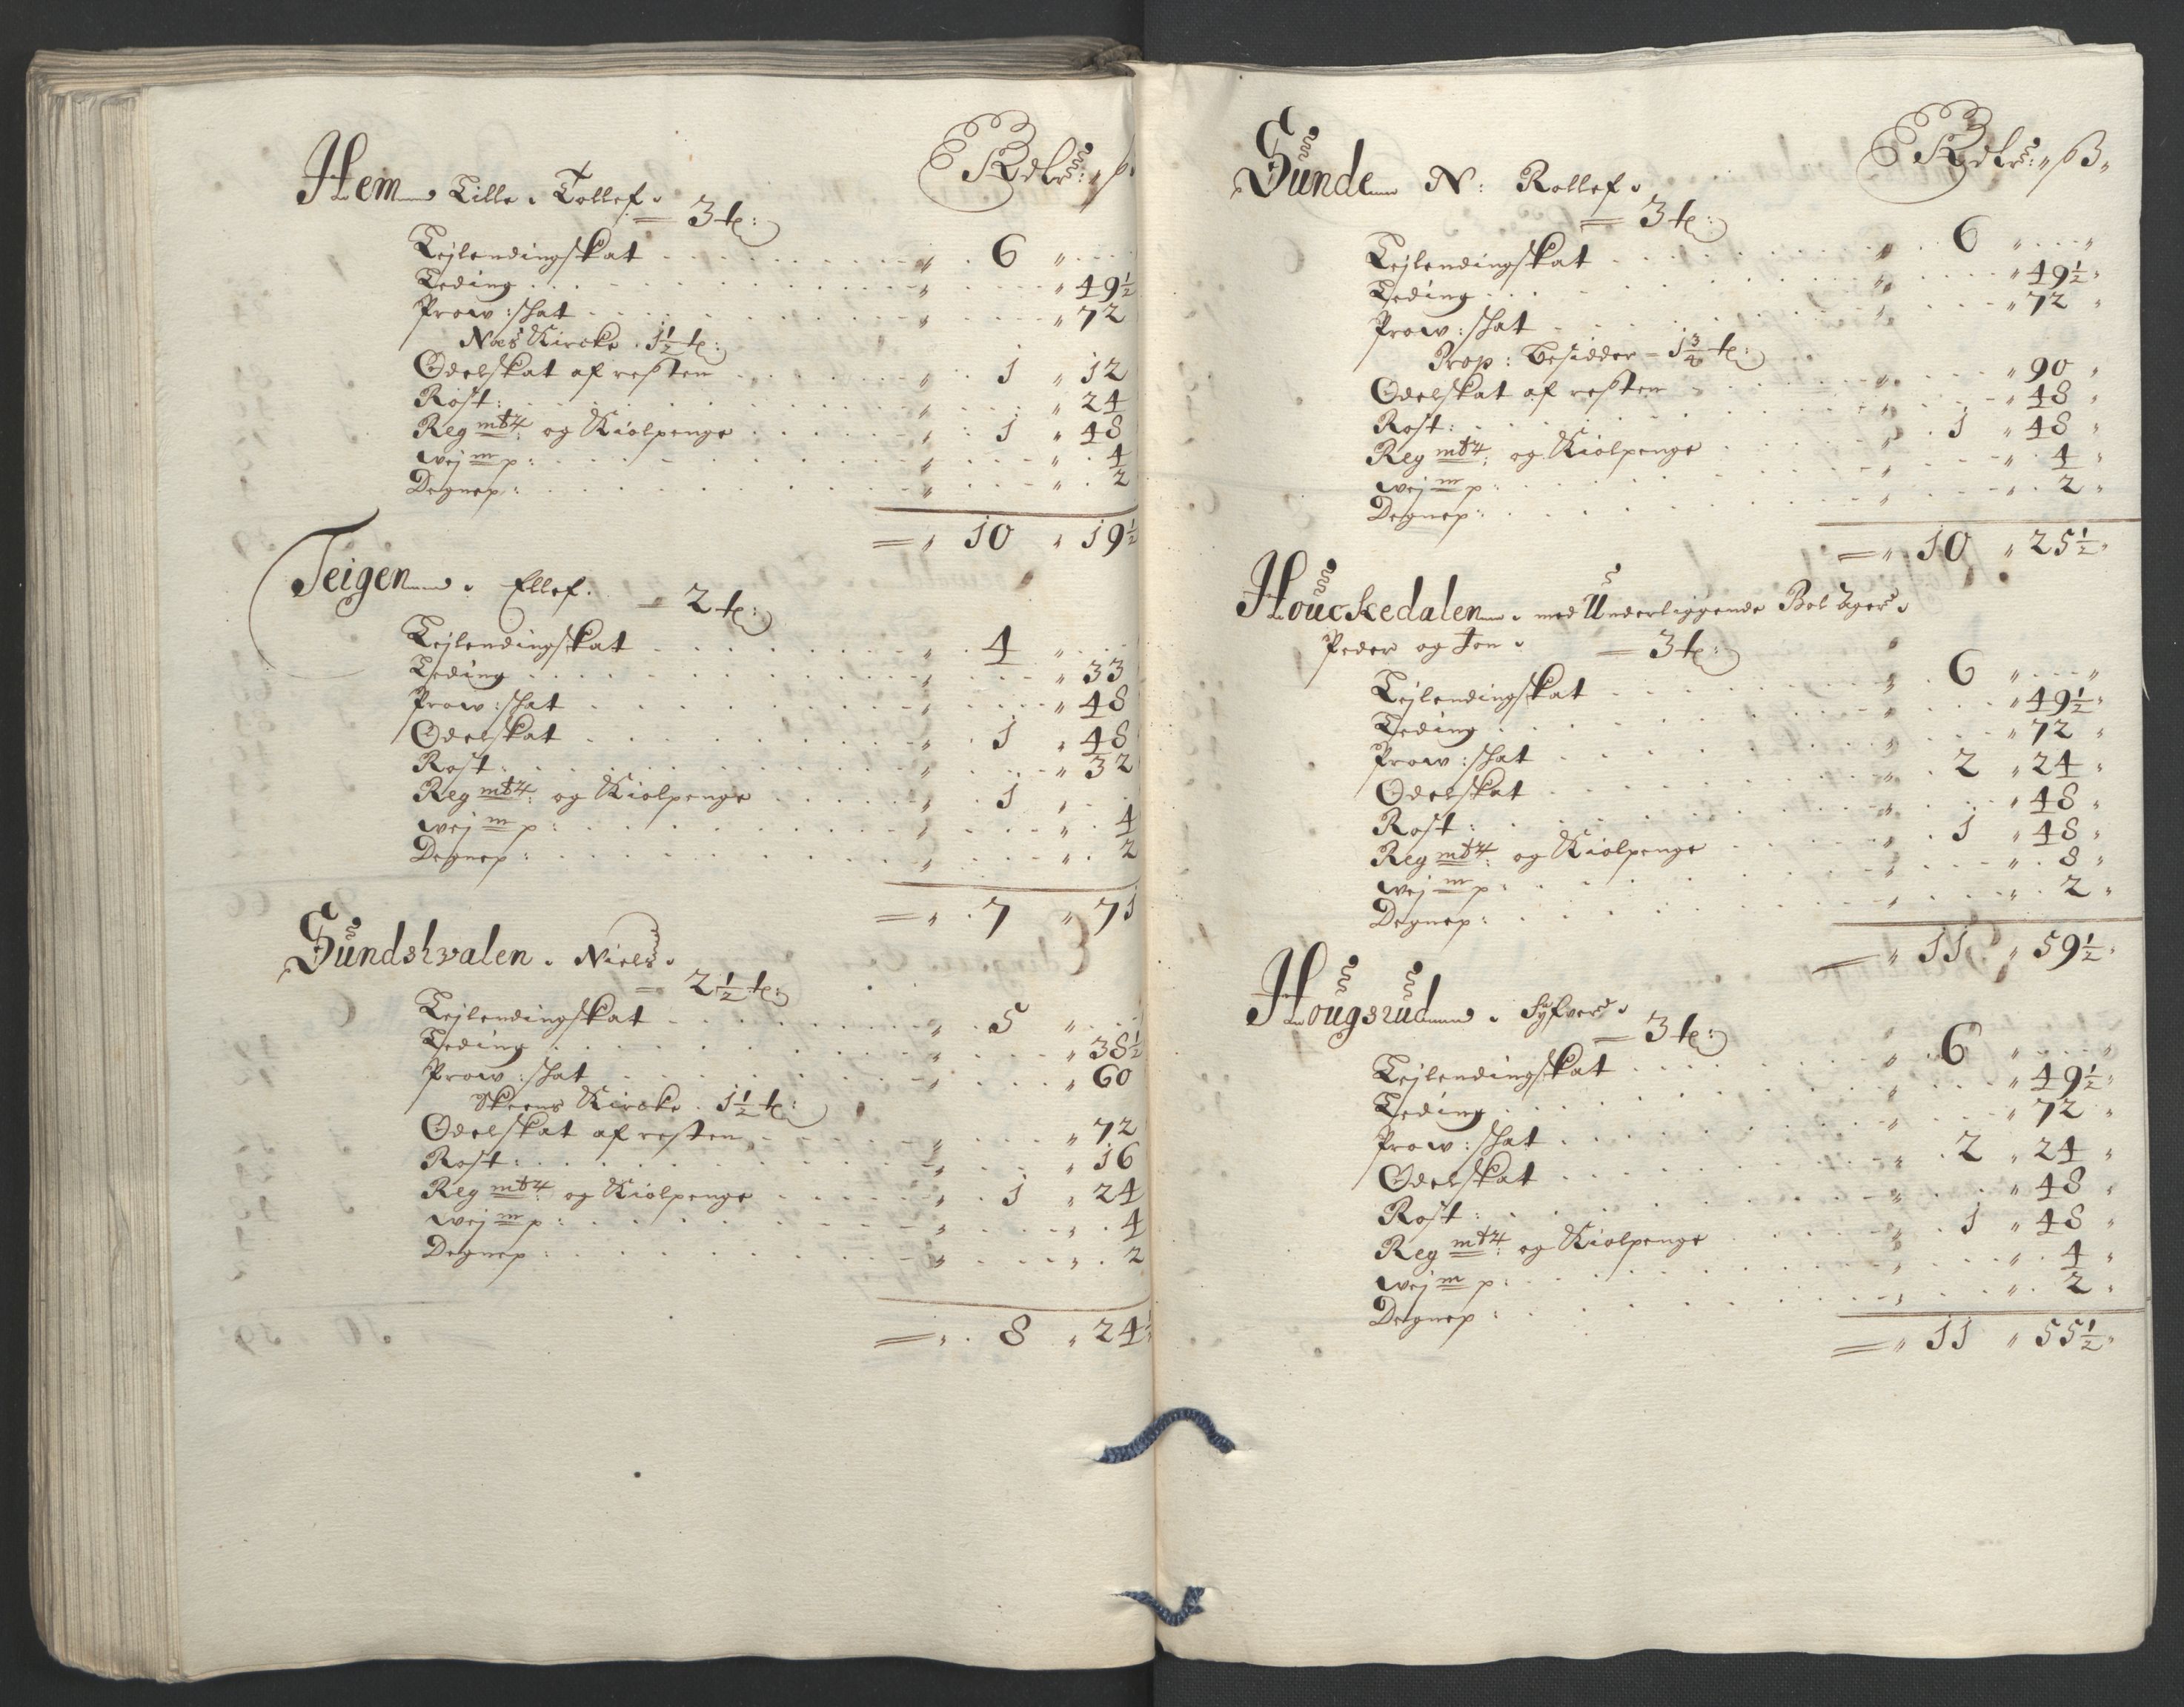 Rdlr: ß
Hem Lille. Tollef.
3 t:
Lejlendingskat 6
Leding 49½
Prow: skat 72
Næs Kircke. 1½ t:
Odelskat af resten 1 12
Rost: 24
Reg mtt: og Kiolpenge 1 48
wej m p: 4
Degnep: 2
10 19½
Teigen. Ellef. 2 t:
Lejlendingskat 4
Leding 33
Prow: skat 48
Odelskat 1 48
Rost: 32
Reg mtt: og Kiolpenge 1
wej m p: 4
Degnep: 2
7 71
Sundshvalen. Niels.
2½ t:
Lejlendingskat 5
Leding 38½
Prow: skat 60
Skeens Kircke. 1½ t:
Odelskat af resten 72
Rost: 16
Reg mtt: og Kiolpenge 1 24
wej m p: 4
Degnep: 2
8 24½
Rdlr: ß
Sunde N: Rollef.
3 t:
Lejlendingskat 6
Leding 49½
Prow: skat 72
Prop: besidder 1¾ t:
Odelskat af resten 90
Rost: 48
Reg mtt: og Kiolpenge 1 48
wej m p: 4
Degnep: 2
10 25½
Houckedalen. med Underliggende Bol
Peder og Jon. 3 t:
Lejlendingskat 6
Leding 49½
Prow: skat 72
Odelskat 2 24
Rost: 48
Reg mtt: og Kiolpenge 1 48
wej m p: 8
Degnep: 2
11 59½
Hougsrud. Syfver.
3 t:
Lejlendingskat 6
Leding 49½
Prow: skat 72
Odelskat 2 24
Rost: 48
Reg mtt: og Kiolpenge 1 48
wej m p: 4
Degnep: 2
11 55½